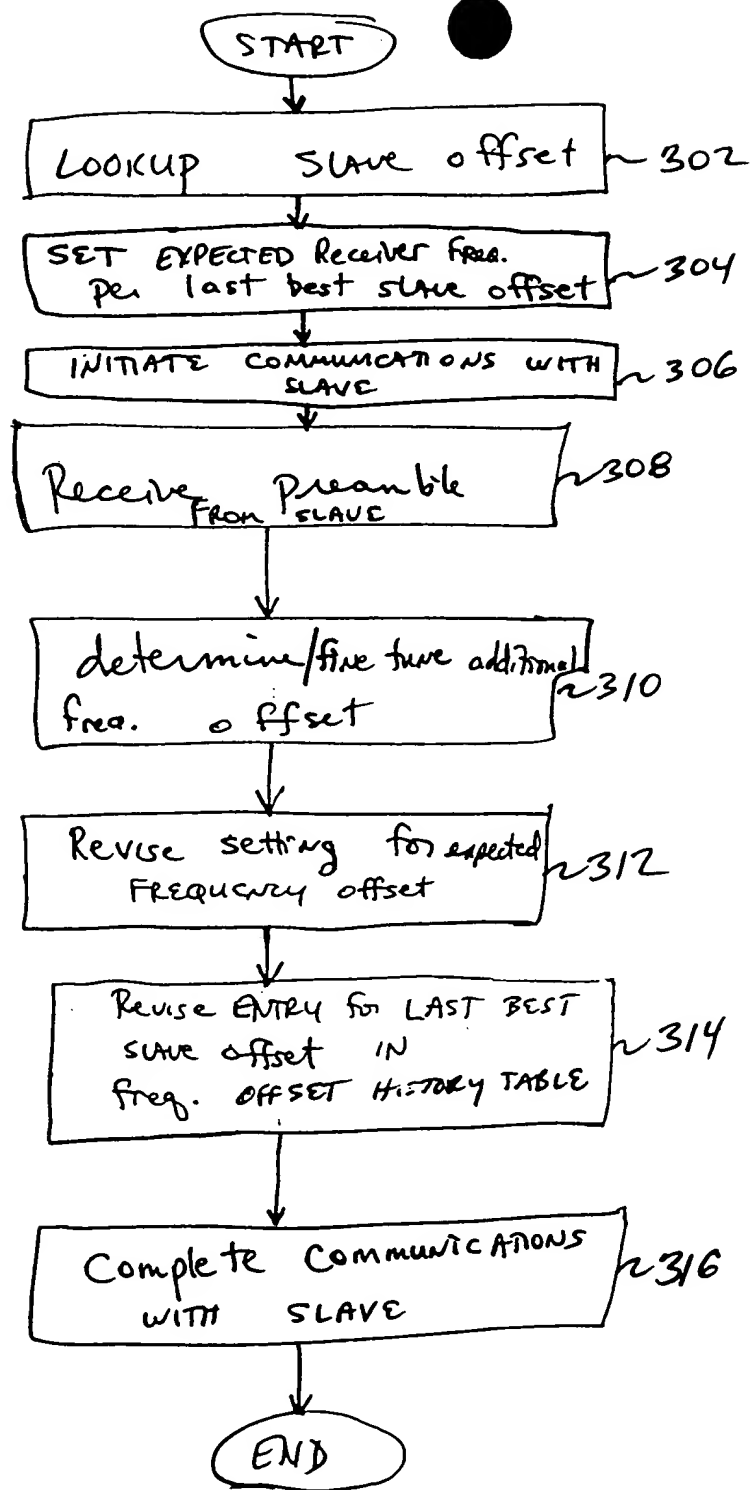 START
LOOKUP SLAVE offset 302
SET EXPECTED Receiver FREQ.
per last best slave offset 304
INITIATE COMMUNICATIONS WITH
SLAVE 306
Receive preamble 308
FROM SLAVE
determine/fine tune additional
freq. offset 310
Revise setting for expected
FREQUENCY offset 312
Revise ENTRY for LAST BEST
SLAVE offset IN 314
freq. OFFSET HISTORY TABLE
Complete COMMUNICATIONS
WITH SLAVE 316
END